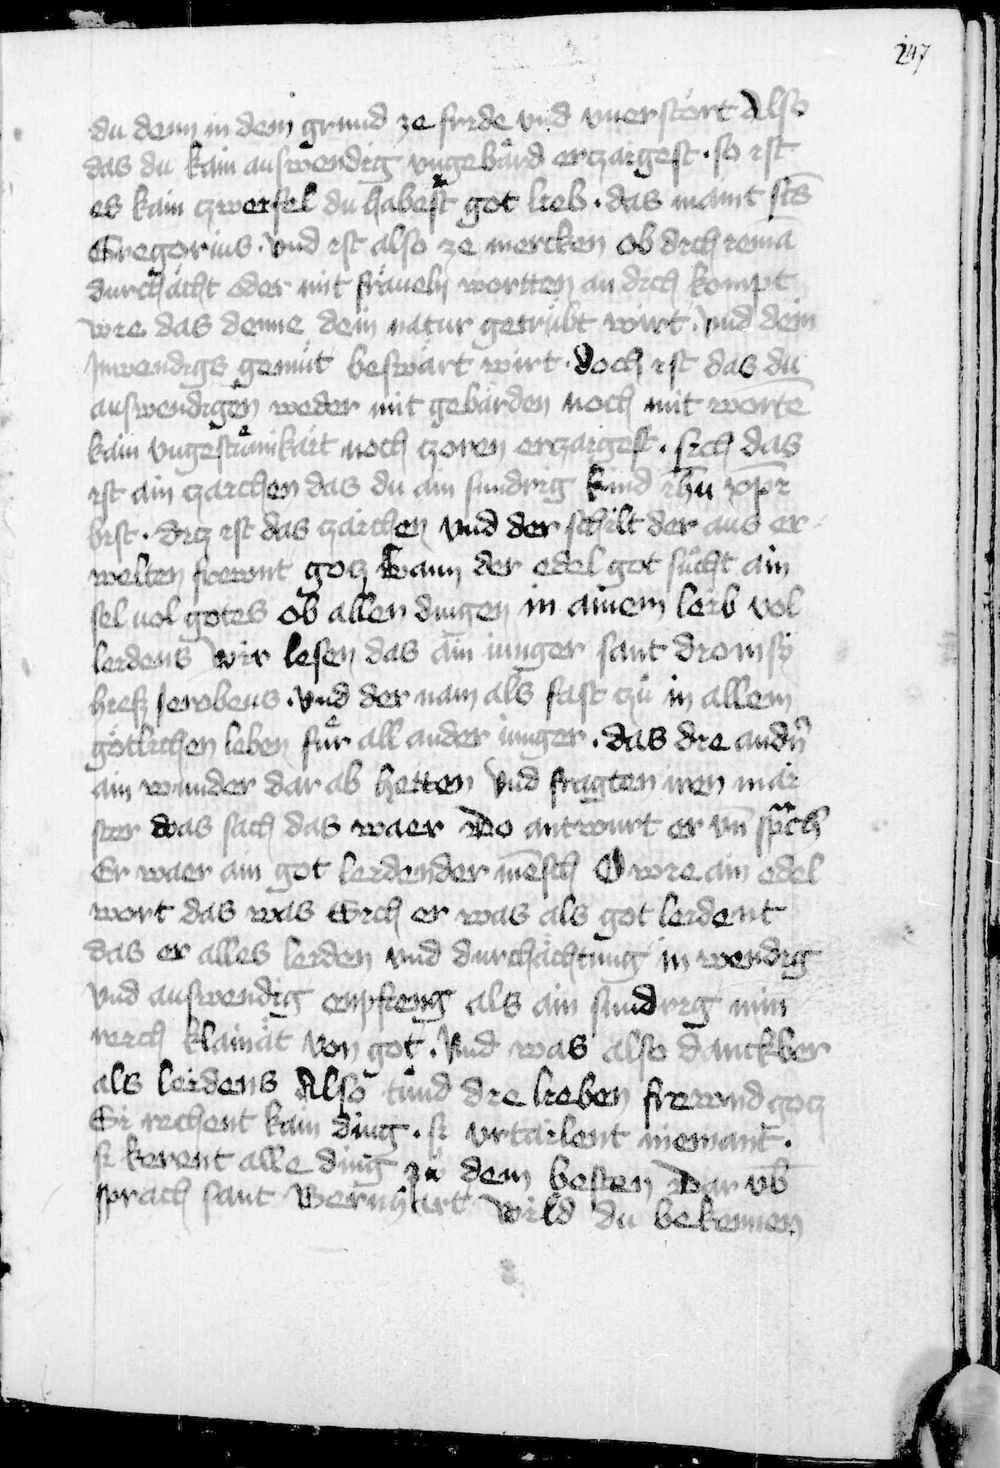 247
du denn in dem grund ze fride vnd vnerstört Also
das du kain auswendig vngebärd erzaigest · so ist
es kain zweifel du habest got lieb · das maint sts̄
Gregorius · Vnd ist also ze mercken ob dich iemā
durchächt oder mit fräueln wortten an dich kompt
wie das denne dein natur getrübt wirt · vnd dein
Inwendigs gemüt beswärt wirt · doch ist das du
auswendigen weder mit gebärden noch mit worte̅
kain vngestümikait noch zoren erzaigest · sich das
ist ain zaichen das du ain sundrig kind ih̄u xp̄i
bist · ditz ist das zaichen vnd der schilt der aus er
welten frewnt gotz wann der edel got sůcht ain
sel vol gotes ob allen dingen in ainem leib vol
leidens Wir lesen das ain iunger sant dionisy
hiess Ierobeus · Vnd der nam als fast zů in allem
götlichen leben für all ander iunger · das die andn̄
ain wunder dar ab hetten Vnd fragten iren mai
ster was sach das waer Do antwurt er vn̄ sprach
Er waer ain got leidender me̅sch O wie ain edel
wort das was Sich er was als got leident
das er alles leiden vnd durchächtung in wendig
vnd auswendig enpfieng als ain sundrig min
nich klainät von got · Vnd was also danckber
als leidens Also tůnd die lieben frewnd gotz
Si rechent kain ding · si vrtailent niemant ·
si kerent alle ding zů dem besten Dar vb̄
sprach sant Bernhart Wild du bekennen